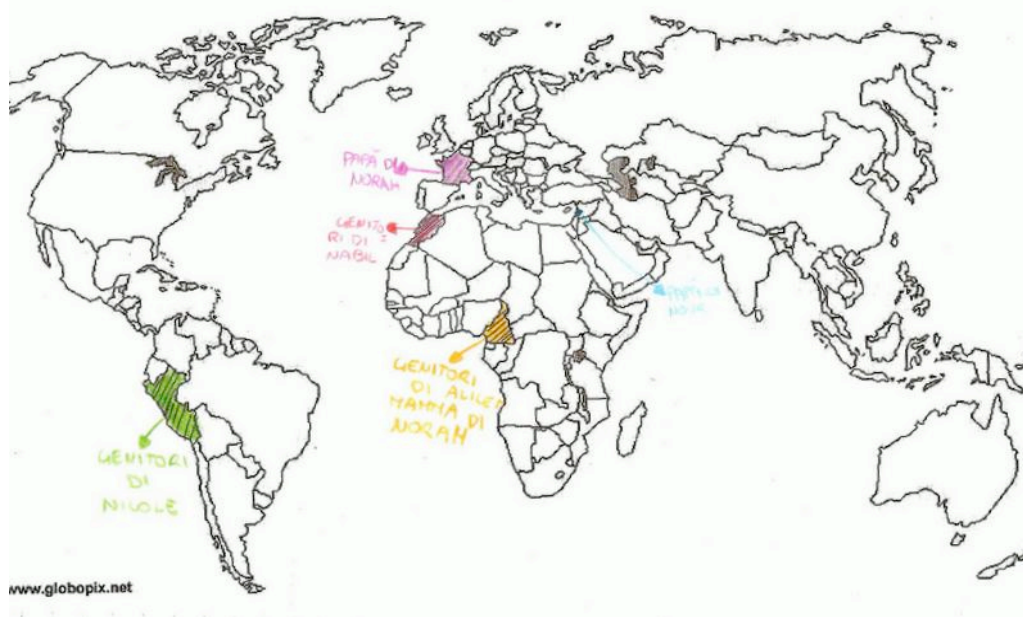 PAPÀ DI
NORAH
GENITO
RI DI
NABIL
PAPÀ DI
GENITORI
DI ALICE
MAMMA DI
NORAH
GENITORI
DI
NICOLE
www.globopix.net